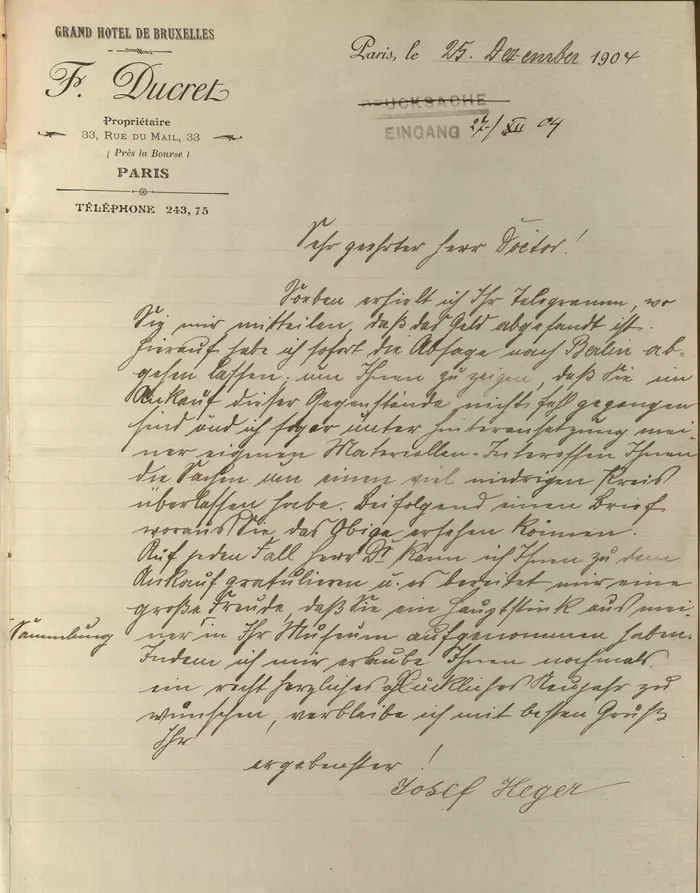 GRAND HOTEL DE BRUXELLES
F. Ducret
Propriétaire
33, RUE DU MAIL, 33
(Près la Bourse)
PARIS
TÉLÉPHONE 243,75
Paris, le 25. Dezember 1904
DRUCKSACHE
EINGANG 27/XII 04
Sehr geehrter Herr Doctor!
Soeben erhielt ich Ihr Telegramm, wo
Sie mir mitteilen, daß das Geld abgesandt ist.
Hierauf habe ich sofort die Absage nach Berlin ab-
gehen lassen, um Ihnen zu zeigen, daß Sie im
Ankauf dieser Gegenstände nicht fehl gegangen
sind und ich sogar unter Hinteransetzung mei-
ner eigenen Materiellen-Interessen Ihnen
die Sachen um einen viel niedrigen Preis
überlassen habe. Beifolgend einen Brief
woraus Sie das Obige ersehen können.
Auf jeden Fall Herr Dr kann ich Ihnen zu dem
Ankauf gratulieren u. es bereitet mir eine
große Freude, daß Sie ein Hauptstück aus mei-
Sammlung
ner in Ihr Museum aufgenommen haben.
Indem ich mir erlaube Ihnen nochmals
ein recht herzliches glückliches Neujahr zu
wünschen, verbleibe ich mit besten Gruß
Ihr
ergebenster!
Josef Heger